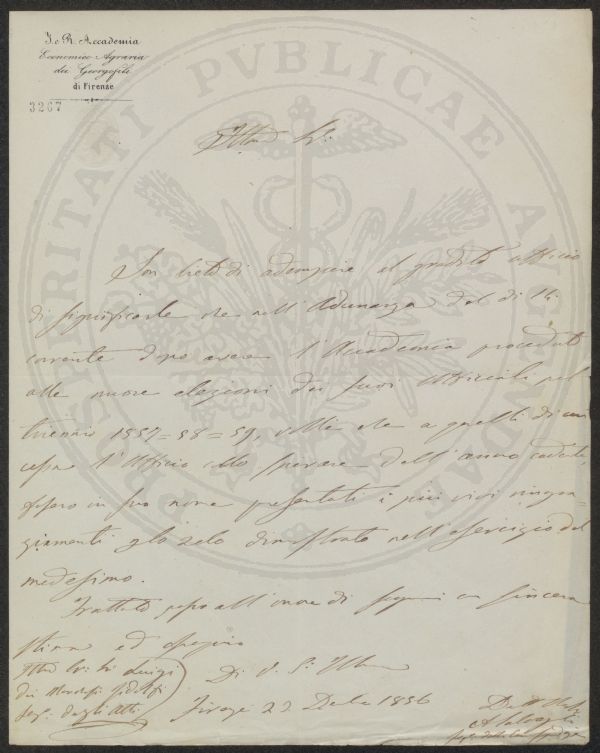 I. e R. Accademia
Economico-Agraria
dei Georgofili
di Firenze
3267
PROSPERITATI PVBLICAE AVGENDAE
Illmo Sig.
Son lieto di adempiere al gradito ufficio
di significarle che nell'Adunanza del di 14
corrente dopo avere l'Accademia proceduto
alle nuove elezioni dei suoi Ufficiali pel
triennio 1857=58=59, volle che a quelli di cui
cessa l'Ufficio allo spirare dell'anno cadente,
fossero in suo nome presentati i più vivi ringra=
ziamenti zelo dimostrato nell'esercizio del
medesimo.
Frattanto passo all'onore di segnarmi con sincera
stima ed ossequio
Di V. S. Illma
Illmo Luigi
dei Marchesi Ridolfi
Seg. degli Atti
Firenze 22 1856